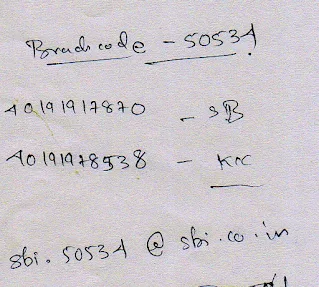 Branch code - 50534
40191917870 - SB
40191978538 - KCC
sbi.50534@sbi.co.in